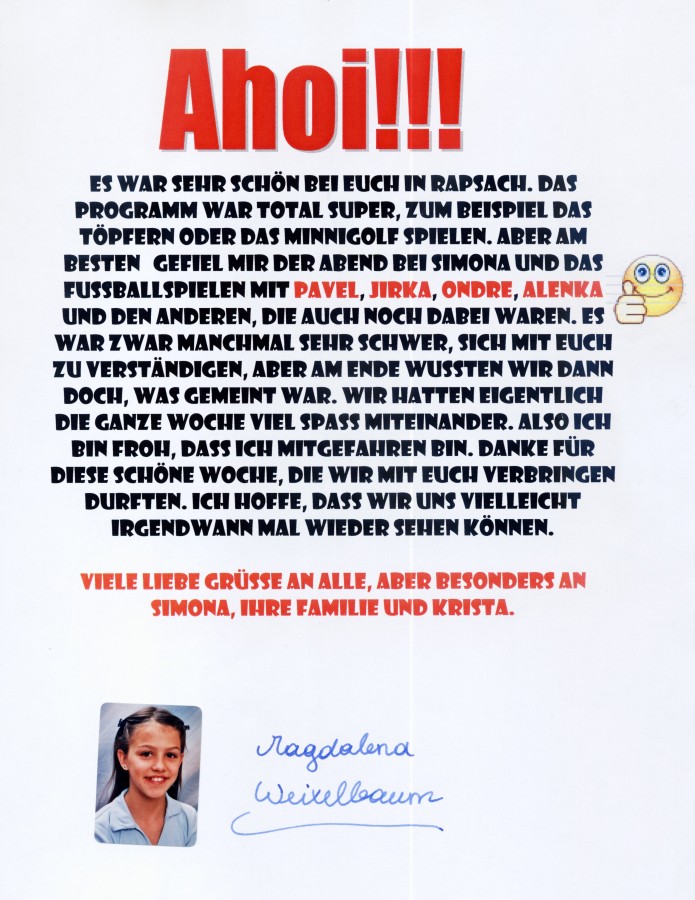 Ahoi!!!
ES WAR SEHR SCHÖN BEI EUCH IN RAPSACH. DAS
PROGRAMM WAR TOTAL SUPER, ZUM BEISPIEL DAS
TÖPFERN ODER DAS MINNIGOLF SPIELEN. ABER AM
BESTEN GEFIEL MIR DER ABEND BEI SIMONA UND DAS
FUSSBALLSPIELEN MIT PAVEL, JIRKA, ONDRE, ALENKA
UND DEN ANDEREN, DIE AUCH NOCH DABEI WAREN. ES
WAR ZWAR MANCHMAL SEHR SCHWER, SICH MIT EUCH
ZU VERSTÄNDIGEN, ABER AM ENDE WUSSTEN WIR DANN
DOCH, WAS GEMEINT WAR. WIR HATTEN EIGENTLICH
DIE GANZE WOCHE VIEL SPASS MITEINANDER. ALSO ICH
BIN FROH, DASS ICH MITGEFAHREN BIN. DANKE FÜR
DIESE SCHÖNE WOCHE, DIE WIR MIT EUCH VERBRINGEN
DURFTEN. ICH HOFFE, DASS WIR UNS VIELLEICHT
IRGENDWANN MAL WIEDER SEHEN KÖNNEN.
VIELE LIEBE GRÜSSE AN ALLE, ABER BESONDERS AN
SIMONA, IHRE FAMILIE UND KRISTA.
Magdalena
Weixelbaum